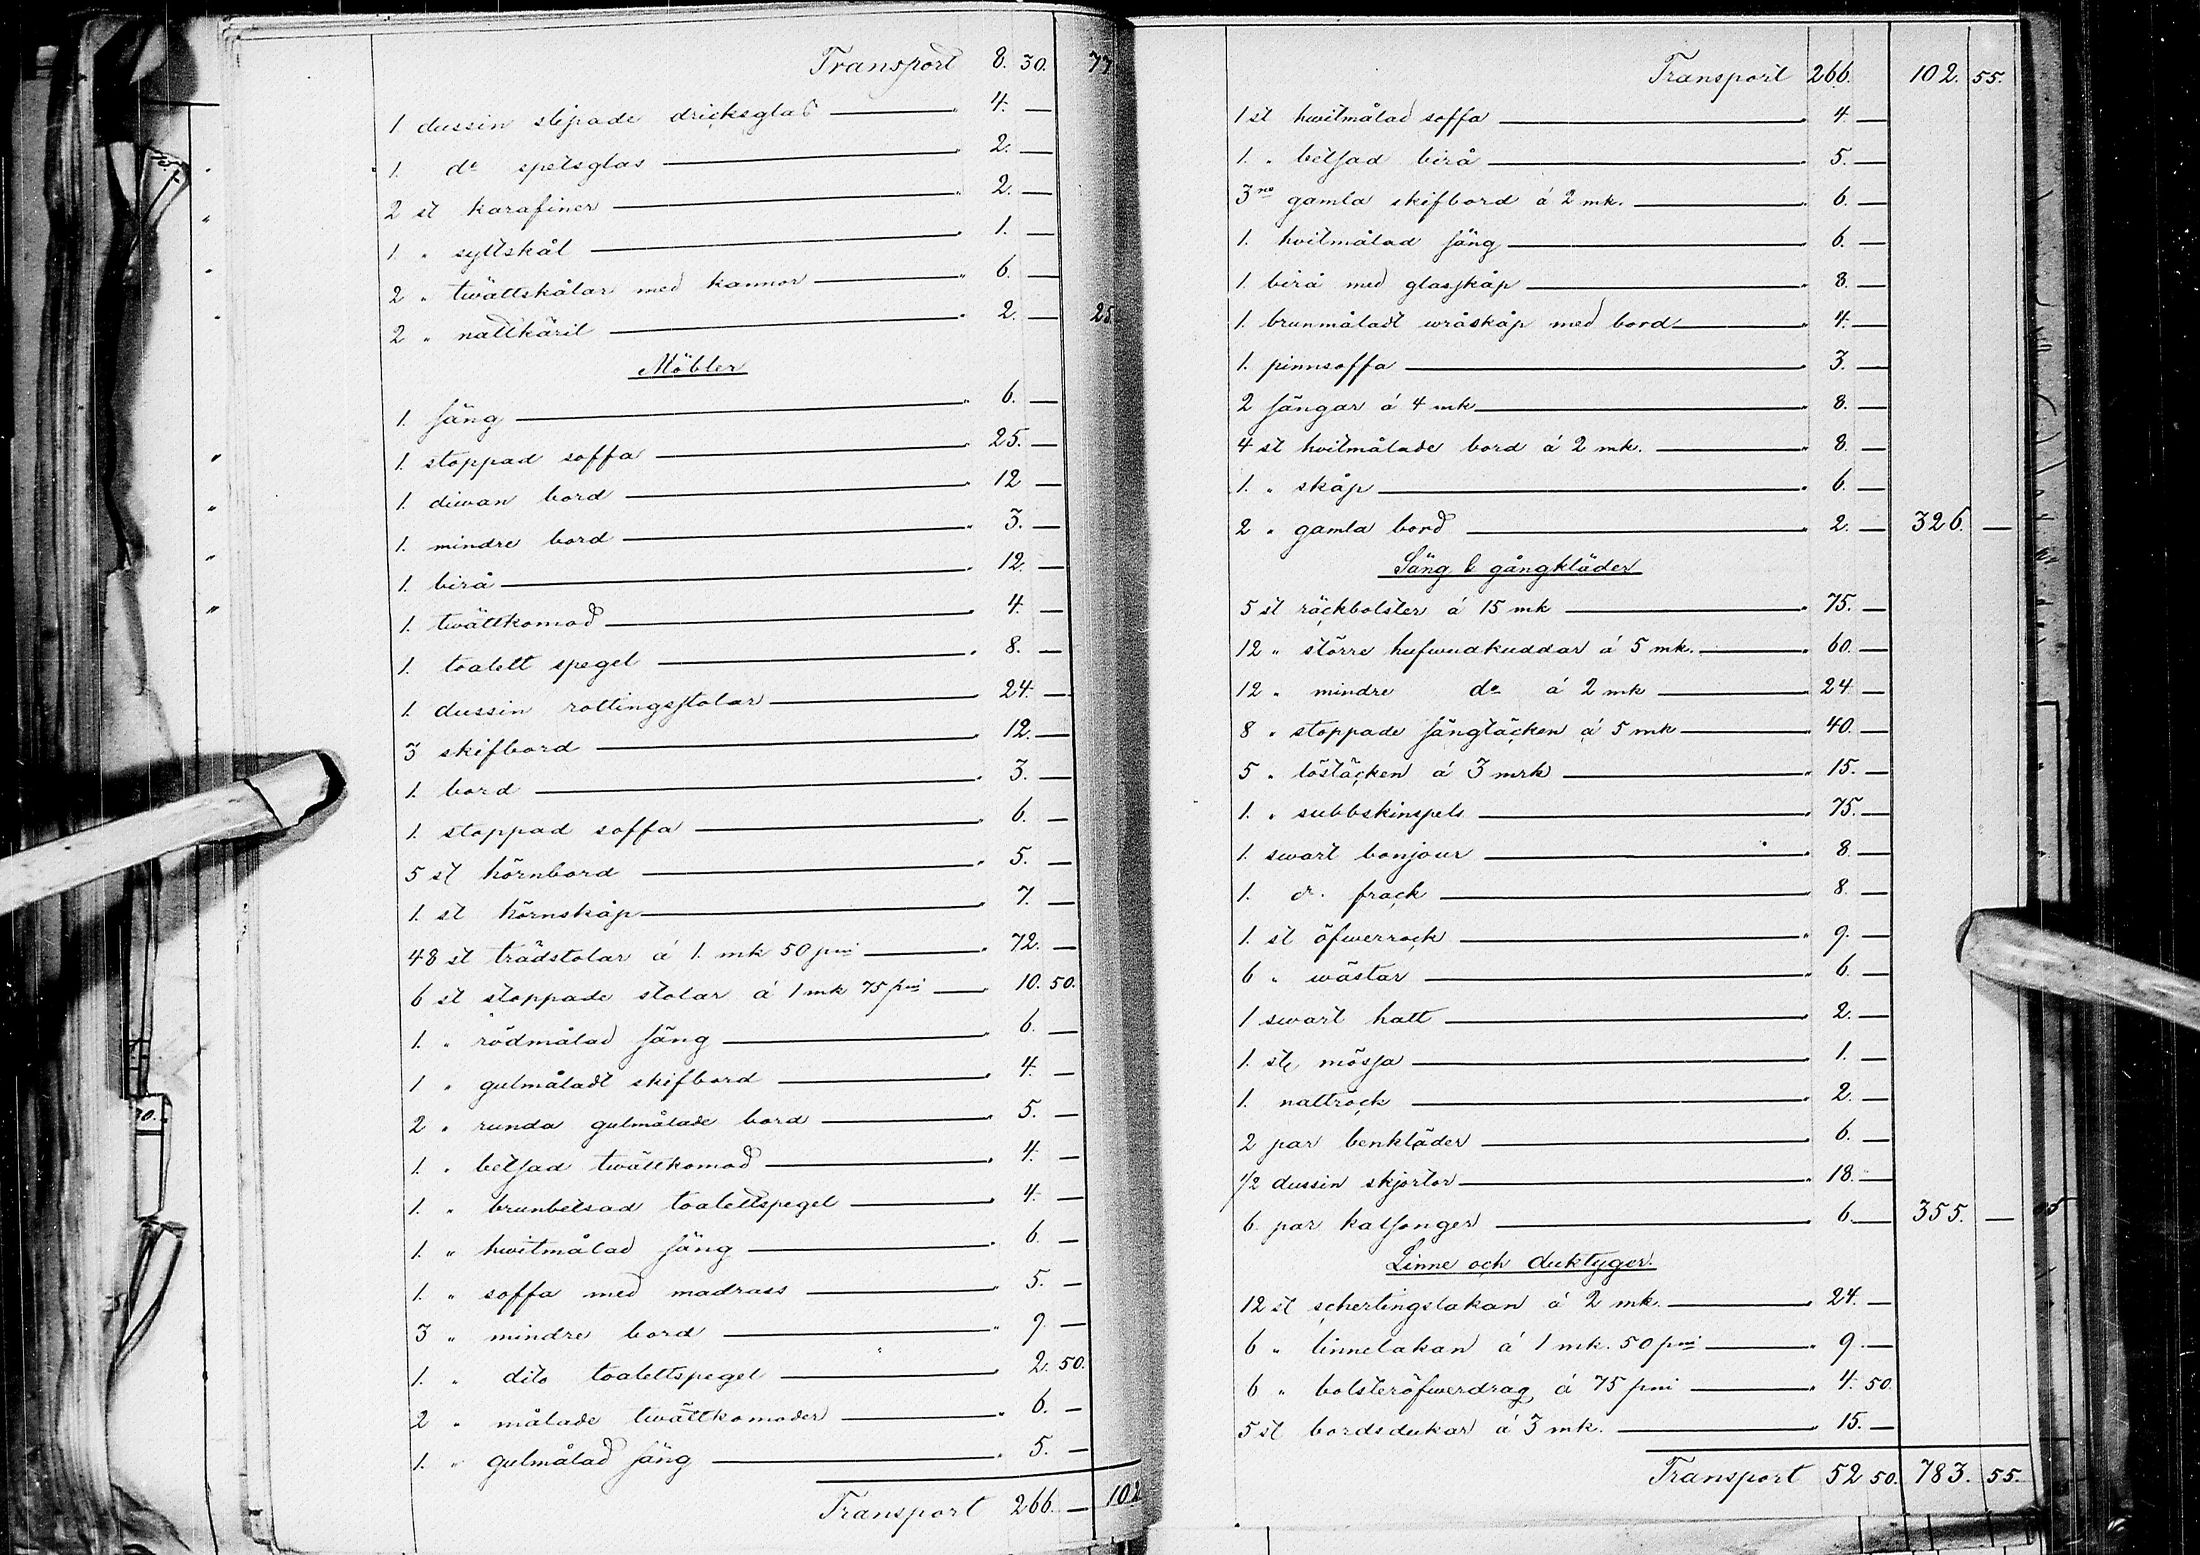 Transport 8. 30. 77
1 dussin slipade dricksglas 4. —
1. do spetsglas 2. —
2 st karafiner 2. —
1 " syltskål 1. —
2 " twättskålar med kannor 6. —
2 " nattkäril 2. — 25
Möbler
1. säng 6. —
1. stoppad soffa 25. —
1. diwan bord 12 —
1. mindre bord 3. —
1. birå 12. —
1. twättkomod 4. —
1. toalett spegel 8. —
1. dussin rottingsstolar 24. —
3 skifbord 12. —
1. bord 3. —
1. stoppad soffa 6. —
5 st hörnbord 5. —
1. st hörnskåp 7. —
48 st trädstolar á 1. mk 50 pni 72. —
6 st stoppade stolar á 1 mk 75 pni 10. 50.
1. " rödmålad säng 6. —
1 " gulmåladt skifbord 4. —
2 " runda gulmålade bord 5. —
1. " betsad twättkomod 4. —
1. " brunbetsad toalettspegel 4. —
1. " hwitmålad säng 6. —
1. " soffa med madrass 5. —
3 " mindre bord 9 —
1. " dito toalettspegel 2. 50.
2 " målade twättkomoder 6. —
1. " gulmålad säng 5. —
Transport 266. — 102
Transport 266. 102. 55.
1 st hwitmålad soffa 4. —
1. " betsad birå 5. —
3ne gamla skifbord á 2 mk. 6. —
1. hvitmålad säng 6. —
1. birå med glasskåp 8. —
1. brunmåladt wråskåp med bord 4. —
1. pinnsoffa 3. —
2 sängar á 4 mk 8. —
4 st hvitmålade bord á 2 mk. 8. —
1. " skåp 6. —
2 " gamla bord 2. — 326. —
Säng & gångkläder
5 st räckbolster á 15 mk 75. —
12 " större hufwudkuddar á 5 mk. 60. —
12 " mindre do á 2 mk 24 —
8 " stoppade sängtäcken á 5 mk 40. —
5 " löstäcken á 3 mrk 15. —
1. " subbskinspels 75. —
1. swart bonjour 8. —
1. d. frack 8. —
1. st öfwerrock 9. —
6 " wästar 6. —
1 swart hatt 2. —
1. st mössa 1. —
1. nattrock 2. —
2 par benkläder 6. —
1/2 dussin skjortor 18. —
6. par kalsonger 6. — 355. —
Linne och duktyger.
12 st schertingslakan á 2 mk. 24. —
6 " linnelakan á 1 mk. 50 pni 9. —
6 " bolsteröfwerdrag á 75 pni 4. 50.
5 st bordsdukar á 3 mk. 15. —
Transport 52 50. 783. 55.